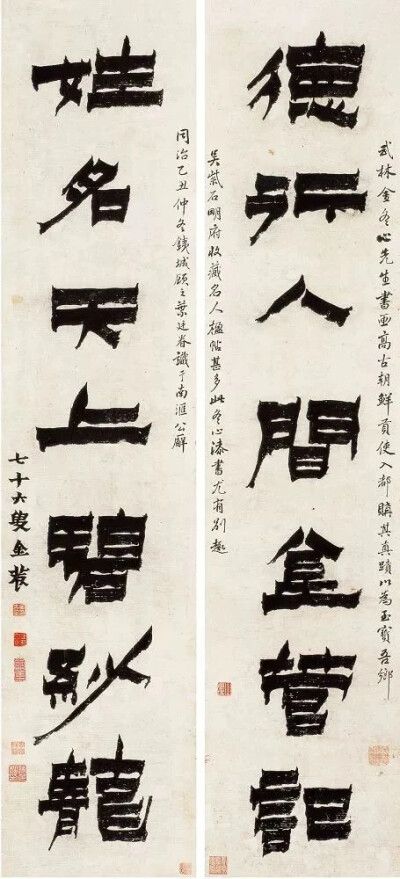 武林金冬心先生書画高古朝鮮貢使入都購其真蹟以為至寶吾鄉
德行人間金管記
吳石明府收藏名人楹帖甚多此冬心漆書尤有別趣
同治乙丑仲冬鐵城顧之葉廷眷識于南滙公廨
姓名天上碧紗籠
七十六叟金農